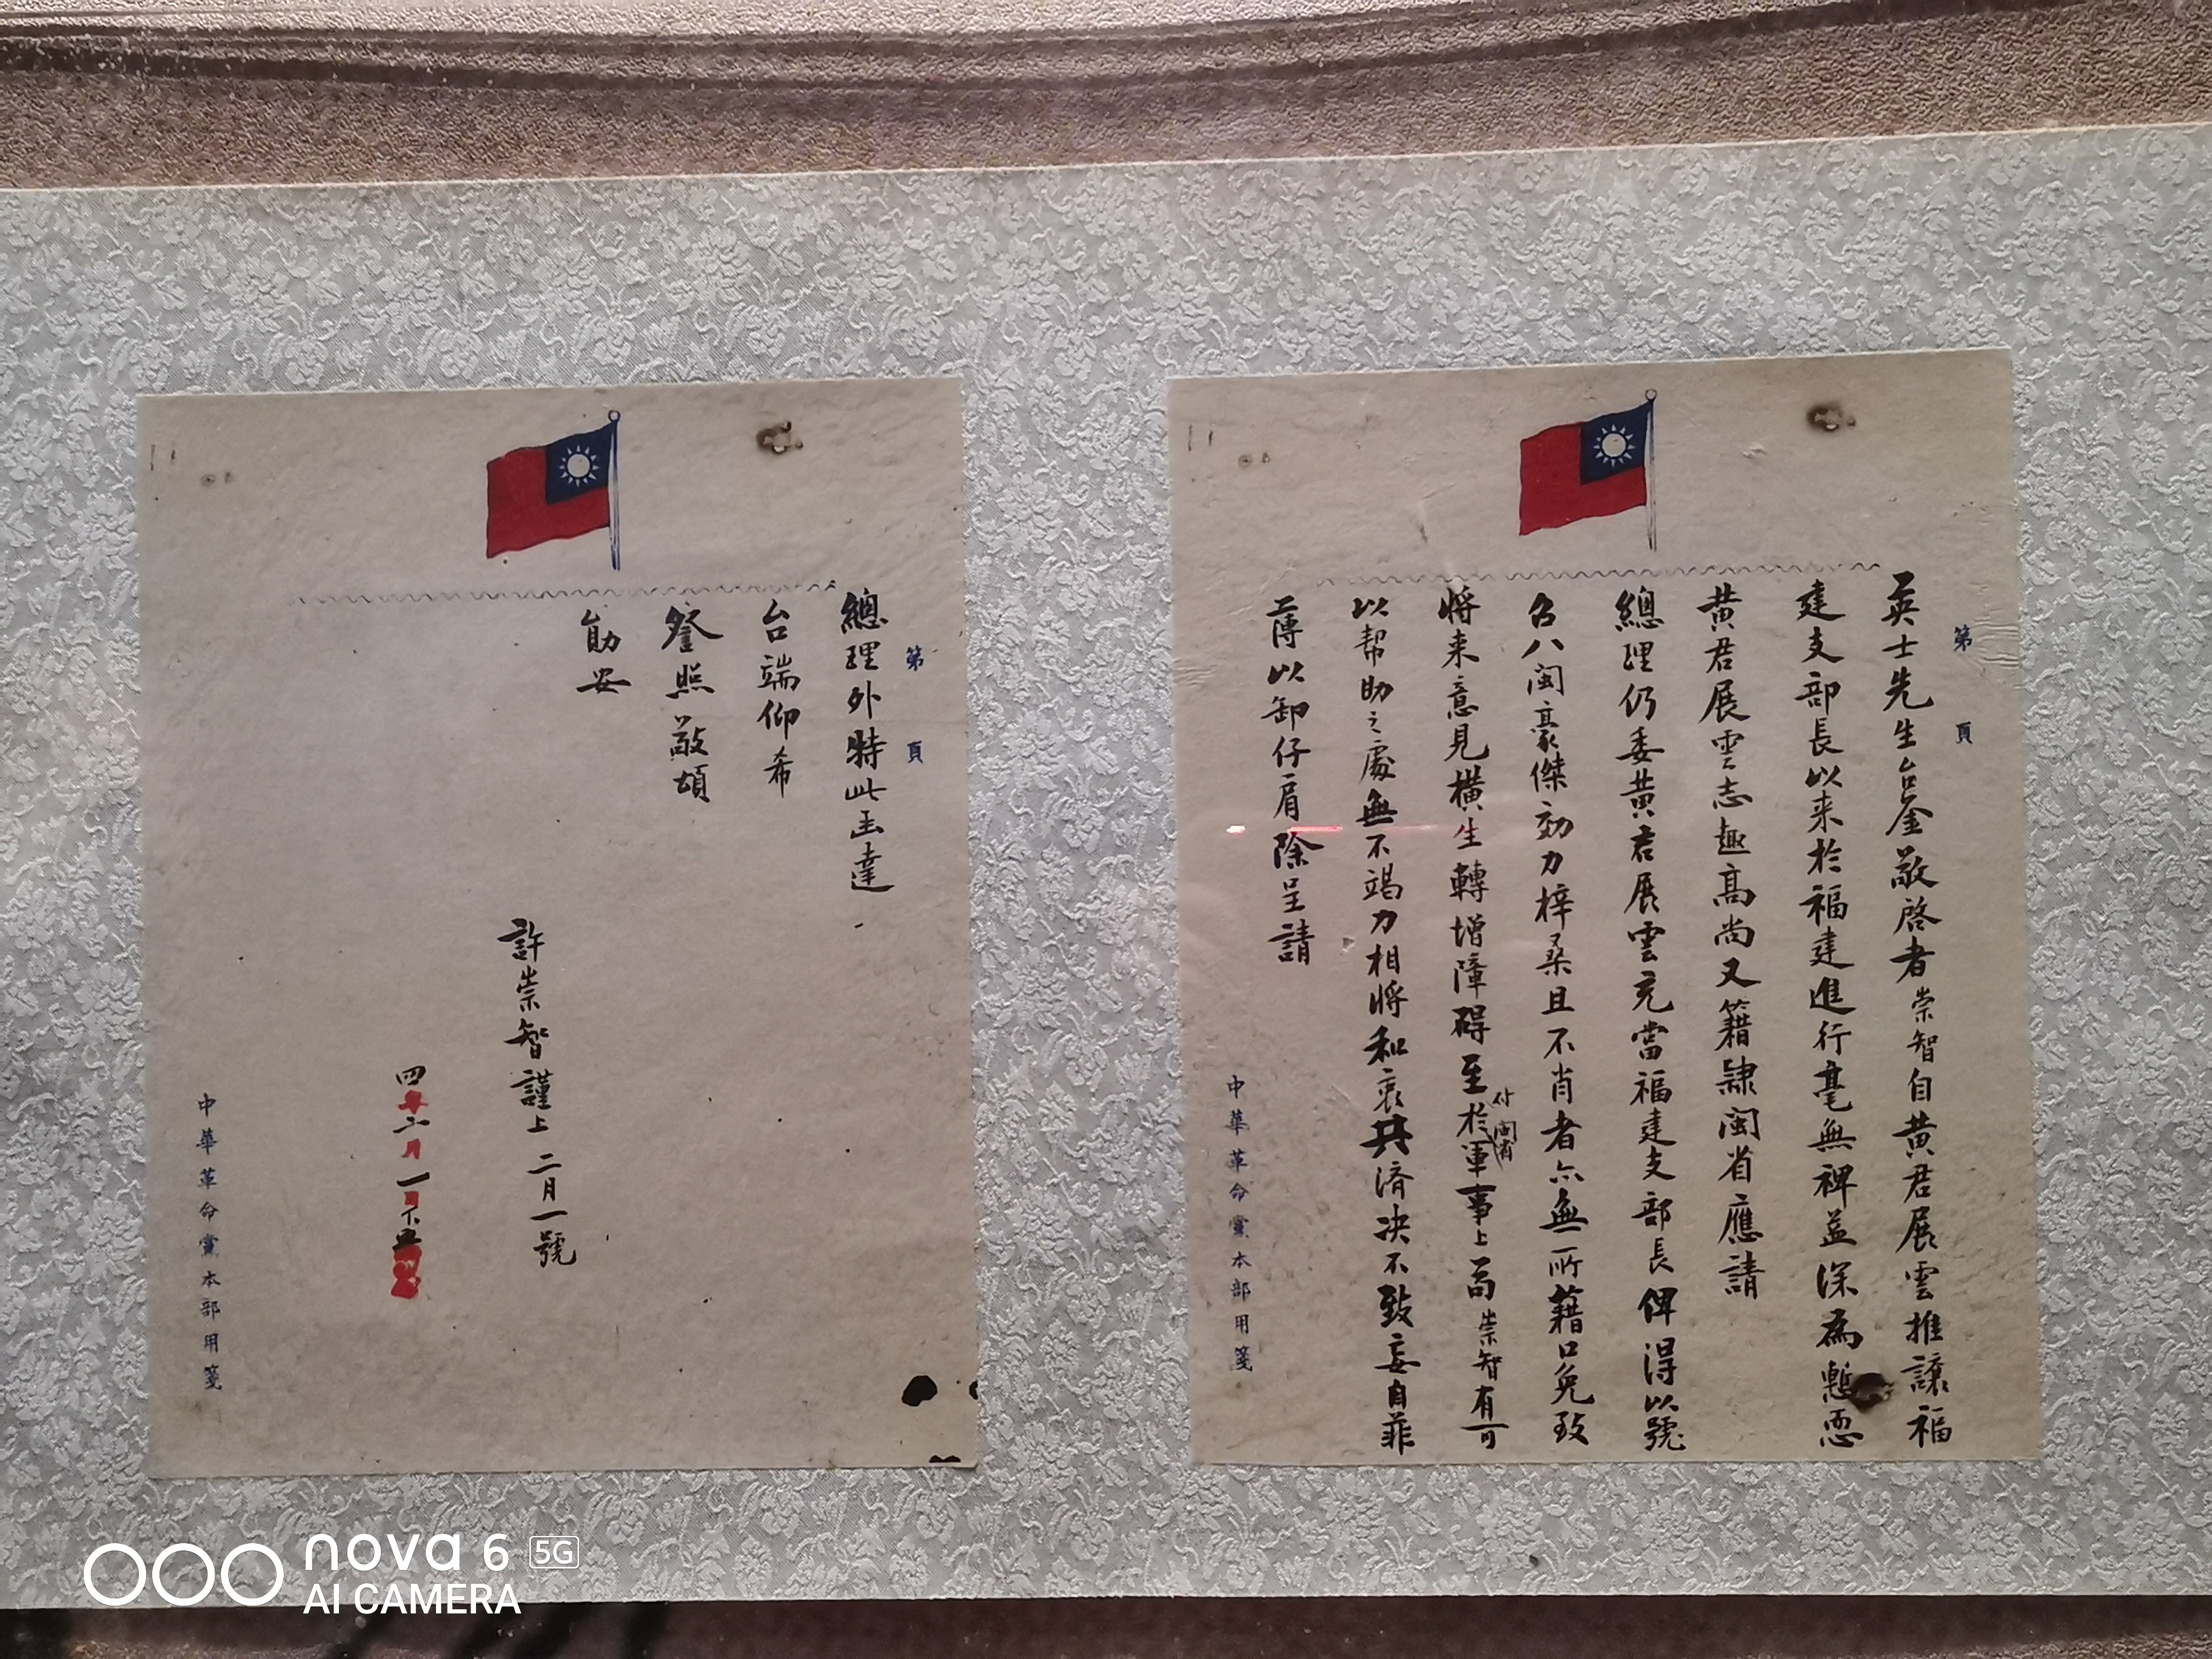 第 頁
英士先生台鉴敬啓者崇智自黄君展雲推讓福
建支部長以来於福建進行毫無裨益深為慙恧
黄君展雲志趣高尚又籍隸閩省應請
總理仍委黄君展雲充當福建支部長俾得以號
召八閩豪傑効力梓桑且不肖者亦無所藉口免致
将来意見橫生轉增障碍至於閩省軍事上苟崇智有可
以帮助之處無不竭力相將和衷共済决不致妄自菲
薄以卸仔肩除呈請
中華革命黨本部用箋
第 頁
總理外特此函達
台端仰希
詧照敬頌
勛安
許崇智謹上 二月一號
四年二月一日下五
中華革命黨本部用箋
nova 6 5G
AI CAMERA